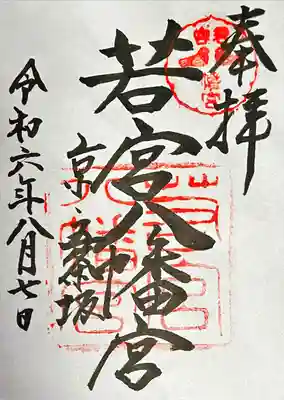 奉拝
若宮八幡宮
京・五条坂
令和六年八月七日